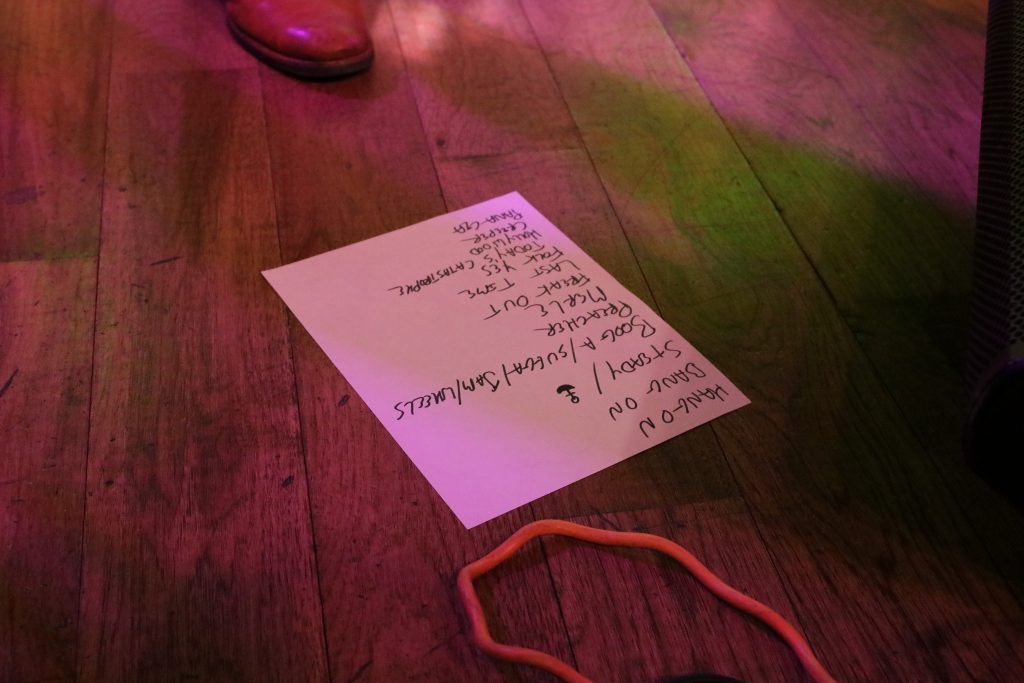 HANG-ON
BANG ON
STEADY /
BOOGA / SAM / WHEELS
PREACHER
MERLE
FREAK OUT
LAST TIME
YES
TODAY'S CATASTROPHE
HOLLYWOOD
CREEPER
PANA-CEA